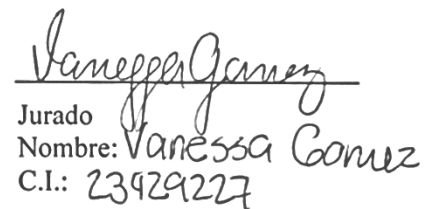 Vanessa Gamez
Jurado
Nombre: Vanessa Gamez
C.I.: 23929227